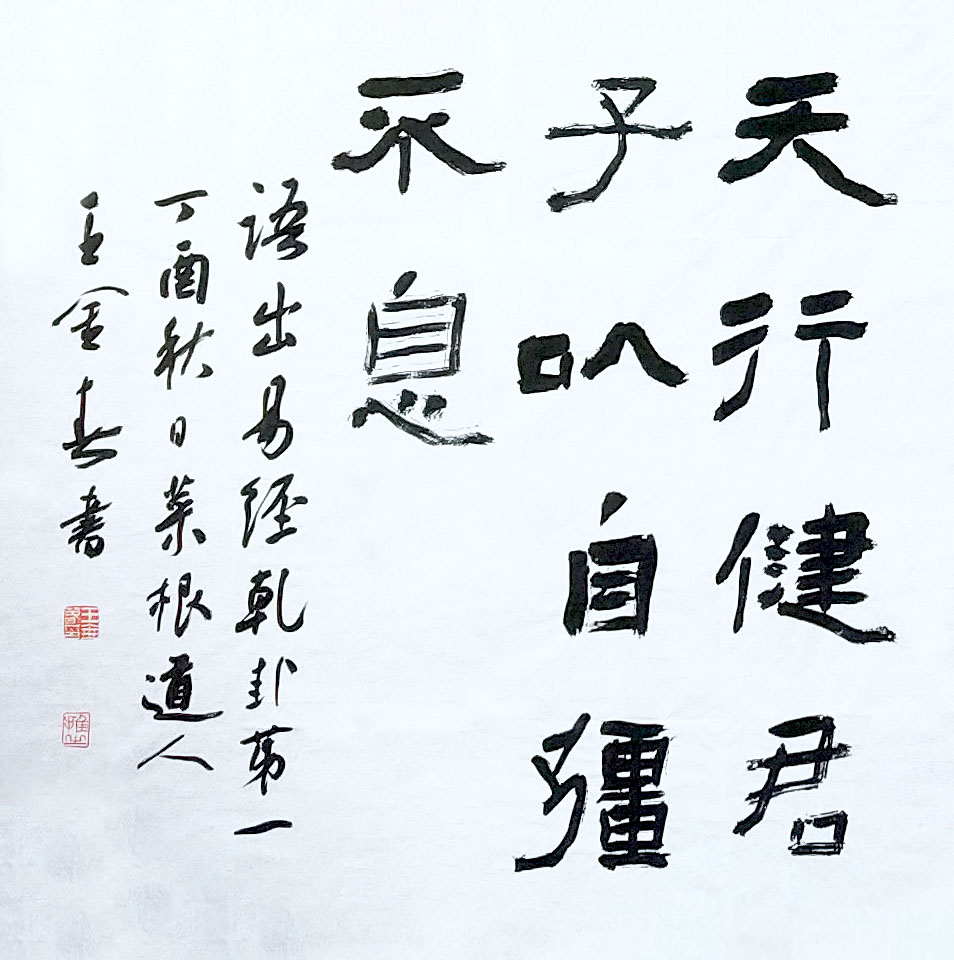 天行健君
子以自彊
不息
语出易经乾卦第一
丁酉秋日菜根道人
王金春书